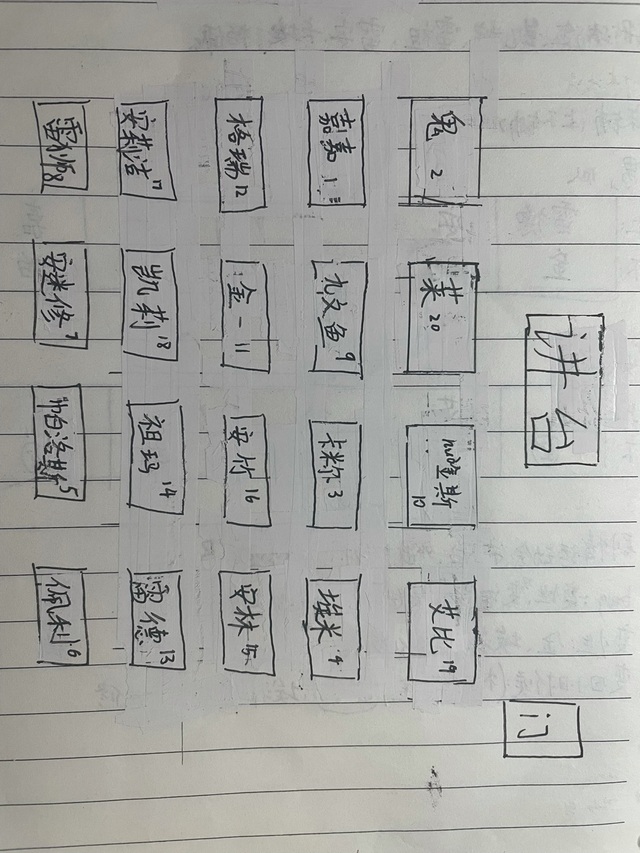 讲台
门
鬼 2
莱 20
斯 10
艾比 19
嘉嘉 1
九文鱼 9
卡米尔 3
埃米 4
格瑞 12
金一 11
安竹 16
安林 15
安莉洁 17
凯莉 18
祖玛 14
雷德 13
雷狮 8
安迷修 7
帕洛斯 5
佩利 6